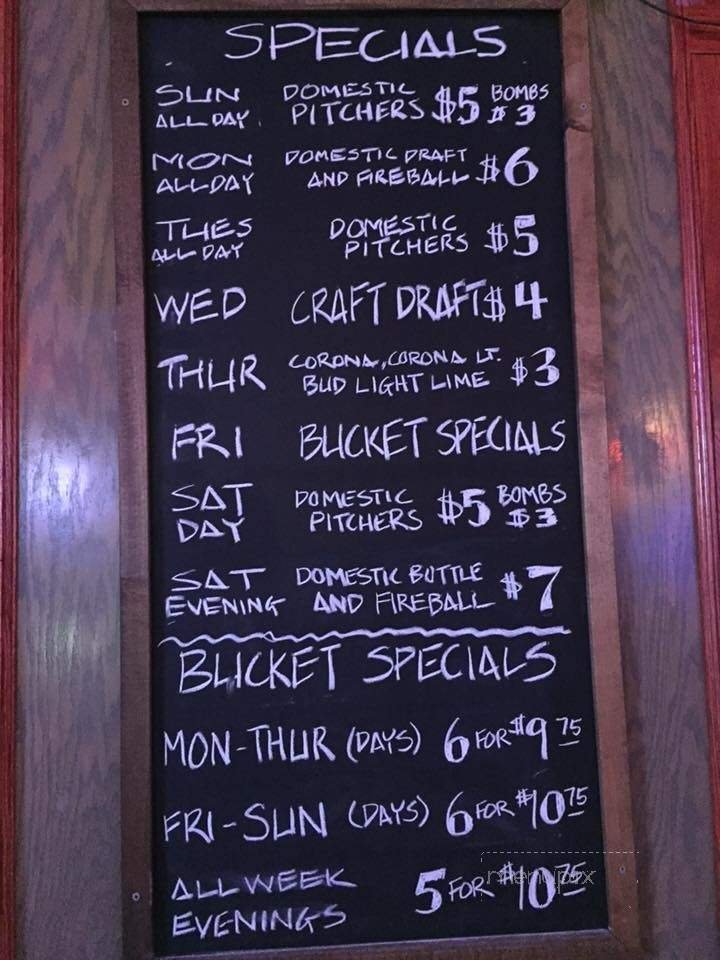 SPECIALS
SUN DOMESTIC BOMBS
ALL DAY PITCHERS $5 $3
MON DOMESTIC DRAFT
ALL DAY AND FIREBALL $6
TUES DOMESTIC
ALL DAY PITCHERS $5
WED CRAFT DRAFT $4
THUR CORONA, CORONA LT.
BUD LIGHT LIME $3
FRI BUCKET SPECIALS
SAT DOMESTIC BOMBS
DAY PITCHERS $5 $3
SAT DOMESTIC BOTTLE
EVENING AND FIREBALL $7
BUCKET SPECIALS
MON-THUR (DAYS) 6 FOR $9 75
FRI-SUN (DAYS) 6 FOR $10 75
ALL WEEK
EVENINGS 5 FOR $10 75
menupix